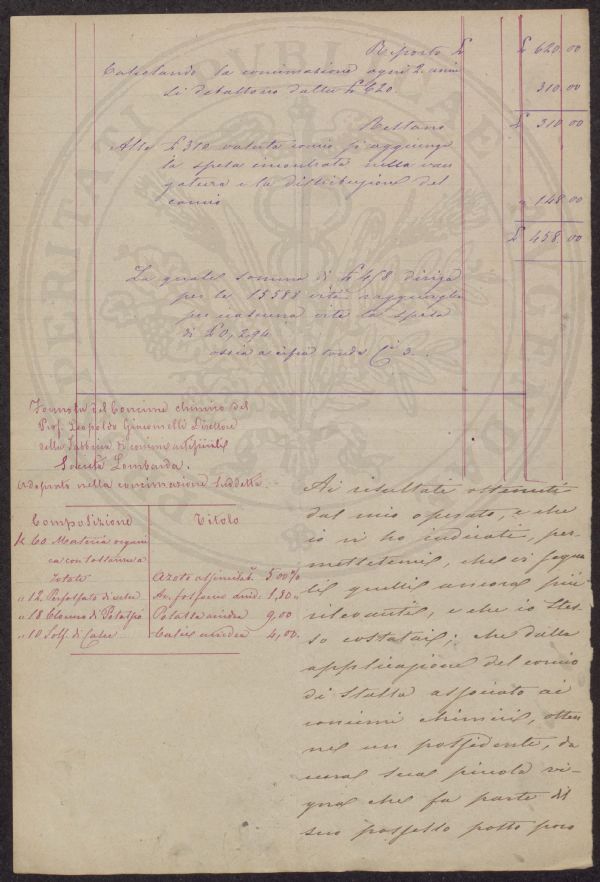 Riporto £ £ 620.00
Calcolando la concimazione ogni 2 anni
si debattono dalle £ 620. 310.00
Restano £ 310.00
Alle £ 310 valuta concio si aggiunge
la spesa incontrata nella van
gatura e la distribuzione del
concio " 148.00
£ 458.00
La quale somma di £ 458 divisa
per le 15588 viti ragguaglia
per ciascuna vite la spesa
di £ 0,294
ossia a cifra tonda Cⁱ 3.
Formola del Concime chimico del
Prof. Leopoldo Giacomelli Direttore
della Fabbrica di concimi artificiali
Società Lombarda.
Adoprato nella concimazione suddetta.
Composizione Titolo
K 60 Materia organi
ca con sostanza a
zotate Azoto assimilab. 5.00%
" 12. Perfosfato di calce An. fosforica sud. 1,80 "
" 18 Cloruro di Potassio Potassa anidra 9,00
" 10 Solf. di Calce Calce anidra 4,00.
Ai risultati ottenuti
dal mio operato, e che
io vi ho indicati, per
mettetemi, che vi sogiun
quelli ancora più
rilevanti, e che io stes
so costatai; che dalla
applicazione del concio
di Stalla associato ai
concimi chimici, otten
ne un possidente, da
una sua piccola vi-
gna che fa parte di
suo possesso posto poco